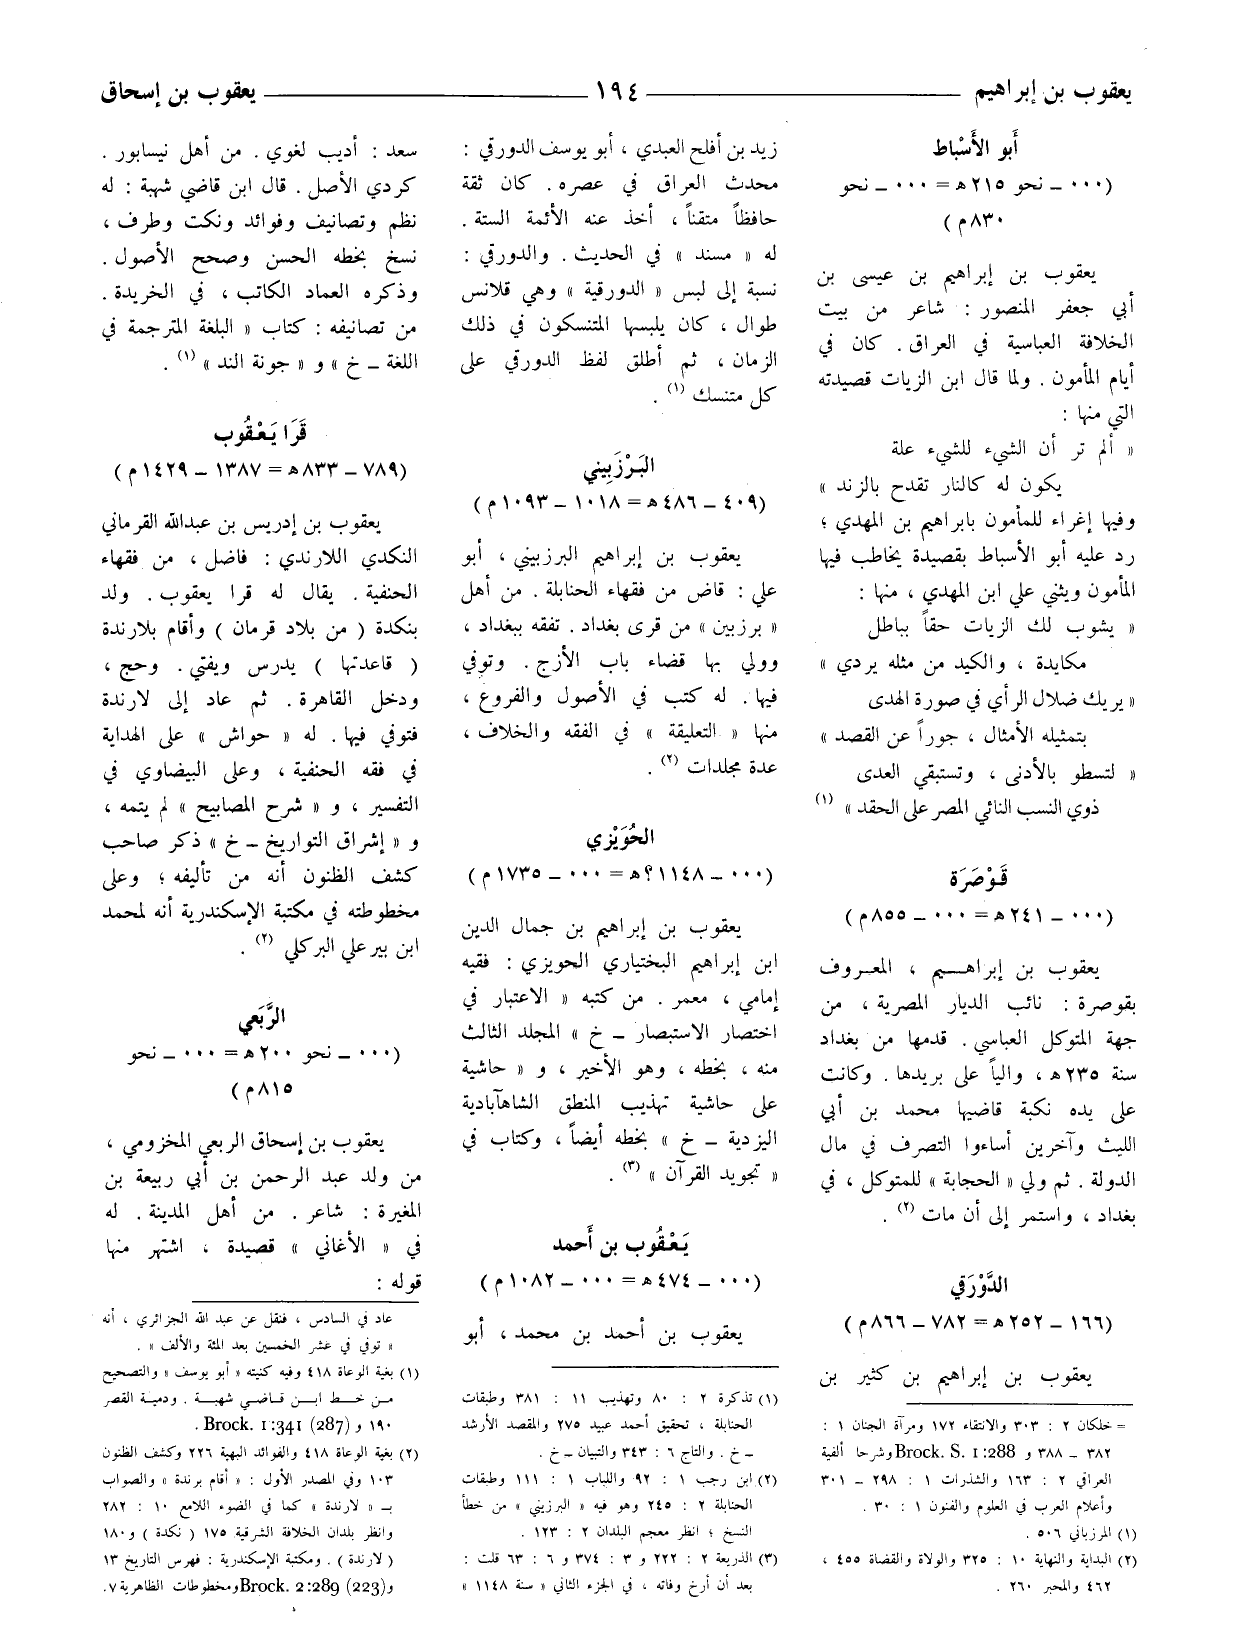 يعقوب بن إبراهيم ــــــ ١٩٤ ــــــ يعقوب بن إسحاق
أَبو الأَسْباط
(٠٠٠ ــ نحو ٢١٥ ه = ٠٠٠ ــ نحو
٨٣٠ م)
يعقوب بن إبراهيم بن عيسى بن
أبي جعفر المنصور : شاعر من بيت
الخلافة العباسية في العراق . كان في
أيام المأمون . ولما قال ابن الزيات قصيدته
التي منها :
« ألم تر أن الشيء للشيء علة
يكون له كالنار تقدح بالزند »
وفيها إغراء للمأمون بابراهيم بن المهدي ؛
رد عليه أبو الأسباط بقصيدة يخاطب فيها
المأمون ويثني علي ابن المهدي ، منها :
« يشوب لك الزيات حقاً بباطل
مكايدة ، والكيد من مثله يردي »
« يريك ضلال الرأي في صورة الهدى
بتمثيله الأمثال ، جوراً عن القصد »
« لتسطو بالأدنى ، وتستبقي العدى
ذوي النسب النائي المصر على الحقد » (١)
قَوْصَرَة
(٠٠٠ ــ ٢٤١ ه = ٠٠٠ ــ ٨٥٥ م)
يعقوب بن إبراهــيم ، المعروف
بقوصرة : نائب الديار المصرية ، من
جهة المتوكل العباسي . قدمها من بغداد
سنة ٢٣٥ ه ، والياً على بريدها . وكانت
على يده نكبة قاضيها محمد بن أبي
الليث وآخرين أساءوا التصرف في مال
الدولة . ثم ولي « الحجابة » للمتوكل ، في
بغداد ، واستمر إلى أن مات (٢) .
الدَّوْرَقي
(١٦٦ ــ ٢٥٢ ه = ٧٨٢ ــ ٨٦٦ م)
يعقوب بن إبراهيم بن كثير بن
= خلكان ٢ : ٣٠٣ والانتقاء ١٧٢ ومرآة الجنان ١ :
٣٨٢ ــ ٣٨٨ و Brock. S. 1:288 وشرحا ألفية
العراقي ٢ : ١٦٣ والشذرات ١ : ٢٩٨ ــ ٣٠١
وأعلام العرب في العلوم والفنون ١ : ٣٠ .
(١) المرزباني ٥٠٦ .
(٢) البداية والنهاية ١٠ : ٣٢٥ والولاة والقضاة ٤٥٥ ،
٤٦٢ والمحبر ٢٦٠ .
زيد بن أفلح العبدي ، أبو يوسف الدورقي :
محدث العراق في عصره . كان ثقة
حافظاً متقناً ، أخذ عنه الأئمة الستة .
له « مسند » في الحديث . والدورقي :
نسبة إلى لبس « الدورقية » وهي قلانس
طوال ، كان يلبسها المتنسكون في ذلك
الزمان ، ثم أطلق لفظ الدورقي على
كل متنسك (١) .
البَرْزَبيني
(٤٠٩ ــ ٤٨٦ ه = ١٠١٨ ــ ١٠٩٣ م)
يعقوب بن إبراهيم البرزبيني ، أبو
علي : قاض من فقهاء الحنابلة . من أهل
« برزبين » من قرى بغداد . تفقه ببغداد ،
وولي بها قضاء باب الأزج . وتوفي
فيها . له كتب في الأصول والفروع ،
منها « التعليقة » في الفقه والخلاف ،
عدة مجلدات (٢) .
الحُوَيْزي
(٠٠٠ ــ ١١٤٨ ؟ ه = ٠٠٠ ــ ١٧٣٥ م)
يعقوب بن إبراهيم بن جمال الدين
ابن إبراهيم البختياري الحويزي : فقيه
إمامي ، معمر . من كتبه « الاعتبار في
اختصار الاستبصار ــ خ » المجلد الثالث
منه ، بخطه ، وهو الأخير ، و « حاشية
على حاشية تهذيب المنطق الشاهآبادية
اليزدية ــ خ » بخطه أيضاً ، وكتاب في
« تجويد القرآن » (٣) .
يَعْقُوب بن أَحمد
(٠٠٠ ــ ٤٧٤ ه = ٠٠٠ ــ ١٠٨٢ م)
يعقوب بن أحمد بن محمد ، أبو
(١) تذكرة ٢ : ٨٠ وتهذيب ١١ : ٣٨١ وطبقات
الحنابلة ، تحقيق أحمد عبيد ٢٧٥ والمقصد الأرشد
ــ خ . والتاج ٦ : ٣٤٣ والتبيان ــ خ .
(٢) ابن رجب ١ : ٩٢ واللباب ١ : ١١١ وطبقات
الحنابلة ٢ : ٢٤٥ وهو فيه « البرزيني » من خطأ
النسخ ؛ انظر معجم البلدان ٢ : ١٢٣ .
(٣) الذريعة ٢ : ٢٢٢ و ٣ : ٣٧٤ و ٦ : ٦٣ قلت :
بعد أن أرخ وفاته ، في الجزء الثاني « سنة ١١٤٨ »
سعد : أديب لغوي . من أهل نيسابور .
كردي الأصل . قال ابن قاضي شهبة : له
نظم وتصانيف وفوائد ونكت وطرف ،
نسخ بخطه الحسن وصحح الأصول .
وذكره العماد الكاتب ، في الخريدة .
من تصانيفه : كتاب « البلغة المترجمة في
اللغة ــ خ » و « جونة الند » (١) .
قَرَا يَعْقُوب
(٧٨٩ ــ ٨٣٣ ه = ١٣٨٧ ــ ١٤٢٩ م)
يعقوب بن إدريس بن عبدالله القرماني
النكدي اللارندي : فاضل ، من فقهاء
الحنفية . يقال له قرا يعقوب . ولد
بنكدة ( من بلاد قرمان ) وأقام بلارندة
( قاعدتها ) يدرس ويفتي . وحج ،
ودخل القاهرة . ثم عاد إلى لارندة
فتوفي فيها . له « حواش » على الهداية
في فقه الحنفية ، وعلى البيضاوي في
التفسير ، و « شرح المصابيح » لم يتمه ،
و « إشراق التواريخ ــ خ » ذكر صاحب
كشف الظنون أنه من تأليفه ؛ وعلى
مخطوطته في مكتبة الإسكندرية أنه لمحمد
ابن بير علي البركلي (٢) .
الرَّبَعي
(٠٠٠ ــ نحو ٢٠٠ ه = ٠٠٠ ــ نحو
٨١٥ م)
يعقوب بن إسحاق الربعي المخزومي ،
من ولد عبد الرحمن بن أبي ربيعة بن
المغيرة : شاعر . من أهل المدينة . له
في « الأغاني » قصيدة ، اشتهر منها
قوله :
عاد في السادس ، فنقل عن عبد الله الجزائري ، أنه
« توفي في عشر الخمسين بعد المئة والألف » .
(١) بغية الوعاة ٤١٨ وفيه كنيته « أبو يوسف » والتصحيح
من خط ابن قاضي شهبة . ودمية القصر
١٩٠ و Brock. 1:341 (287) .
(٢) بغية الوعاة ٤١٨ والفوائد البهية ٢٢٦ وكشف الظنون
١٠٣ وفي المصدر الأول : « أقام برندة » والصواب
بـ « لارندة » كما في الضوء اللامع ١٠ : ٢٨٢
وانظر بلدان الخلافة الشرقية ١٧٥ ( نكدة ) و ١٨٠
( لارندة ) . ومكتبة الإسكندرية : فهرس التاريخ ١٣
و Brock. 2:289 (223) ومخطوطات الظاهرية ٧ .